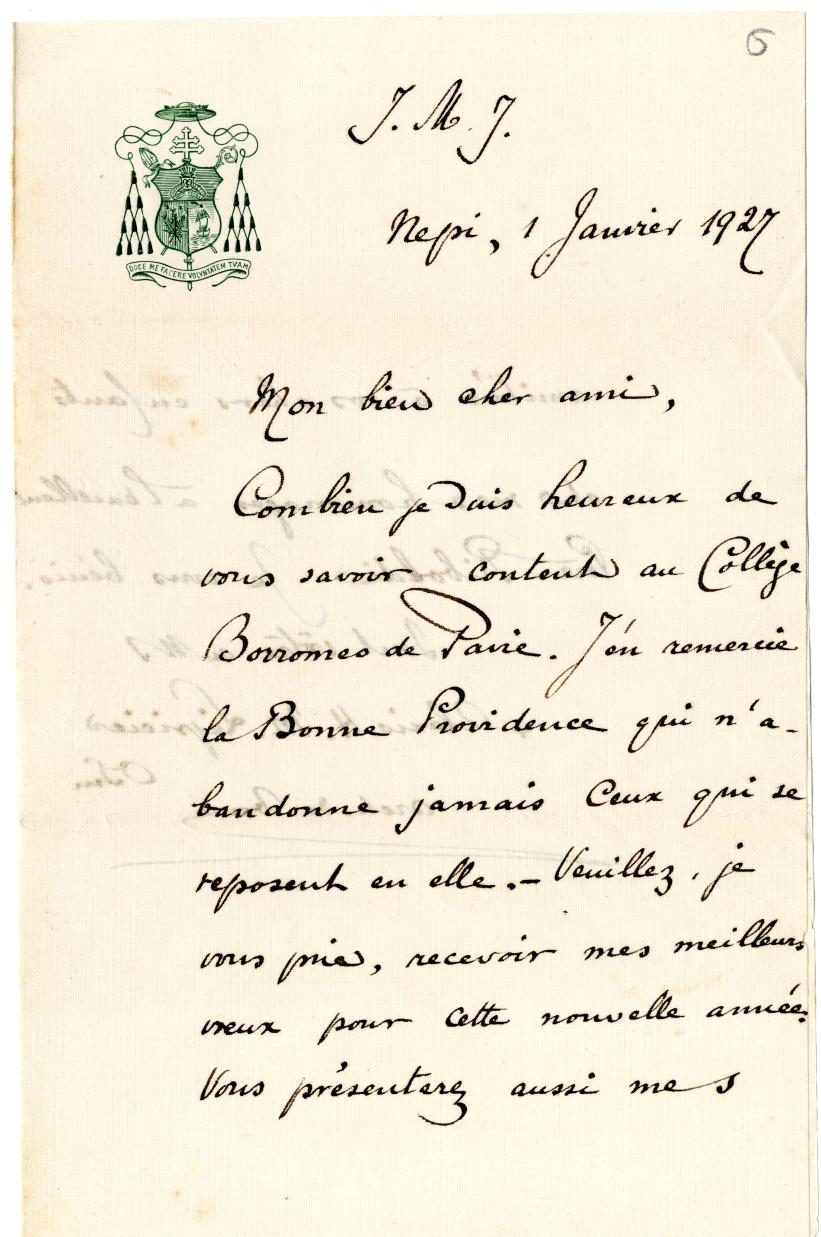 6
J. M. J.
DOCE ME FACERE VOLVNTATEM TVAM
Nepi, 1 Janvier 1927
Mon bien cher ami,
Combien je suis heureux de
vous savoir content au Collège
Borromeo de Pavie. J'en remercie
la Bonne Providence qui n'a-
bandonne jamais ceux qui se
reposent en elle. – Veuillez, je
vous prie, recevoir mes meilleurs
vœux pour cette nouvelle année.
Vous présenterez aussi mes